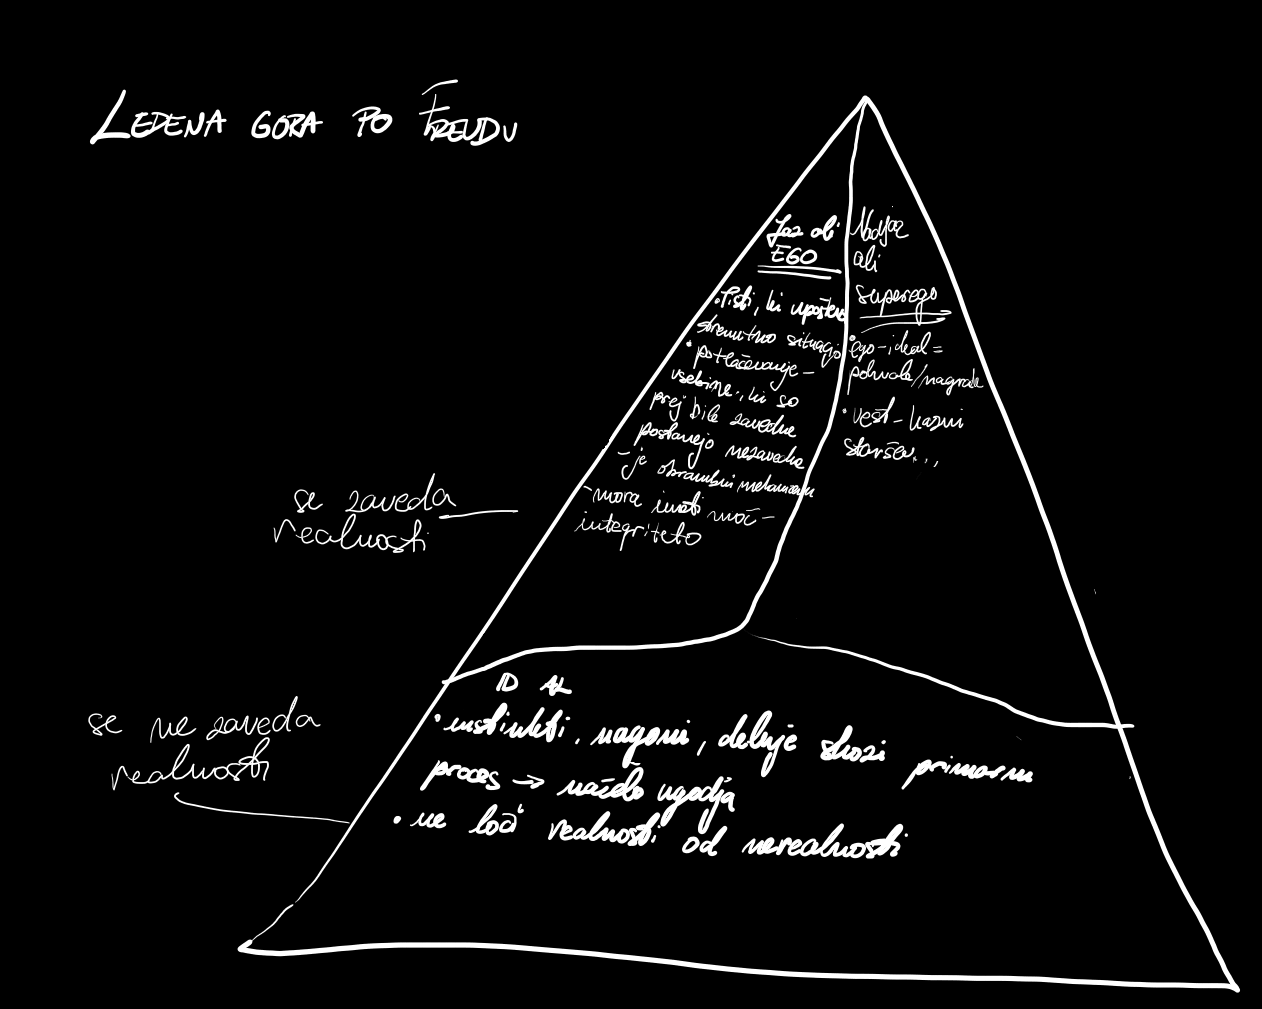 LEDENA GORA PO FREUDU
Jaz ali
EGO
• Tisti, ki upošteva
stremitno situacijo
• potlačevanje –
vsebine, ki so
prej bile zavedne
postanejo nezavedne
– je obrambni mehanizem
– mora imeti moč –
integriteto
Nadjaz
ali
superego
• ego-ideal =
pohvale/nagrade
• vest – kazni
staršev...
se zaveda
realnosti
ID AL
• instinkti, nagoni, deluje skozi primarni
proces → načelo ugodja
• ne loči realnosti od nerealnosti
se ne zaveda
realnosti